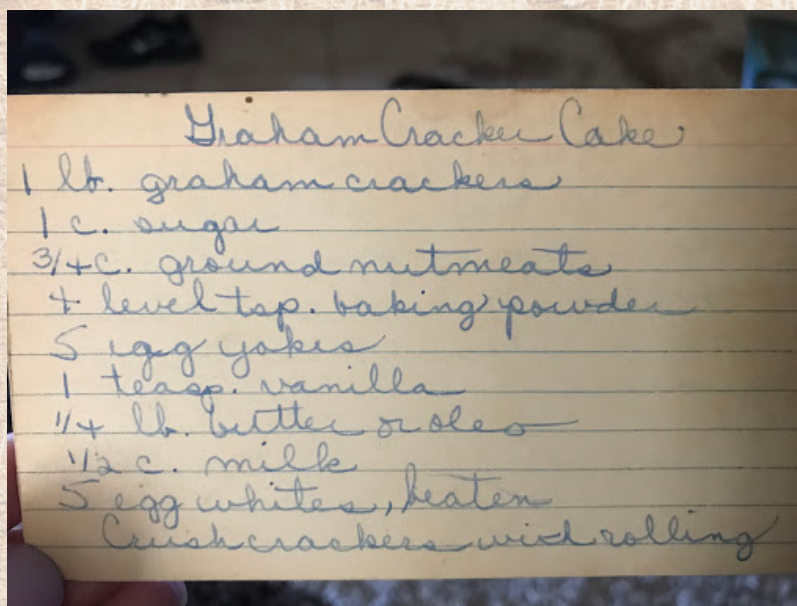 Graham Cracker Cake
1 lb. graham crackers
1 c. sugar
3/4 c. ground nutmeats
4 level tsp. baking powder
5 egg yokes
1 teasp. vanilla
1/4 lb. butter or oleo
1/2 c. milk
5 egg whites, beaten
Crush crackers with rolling